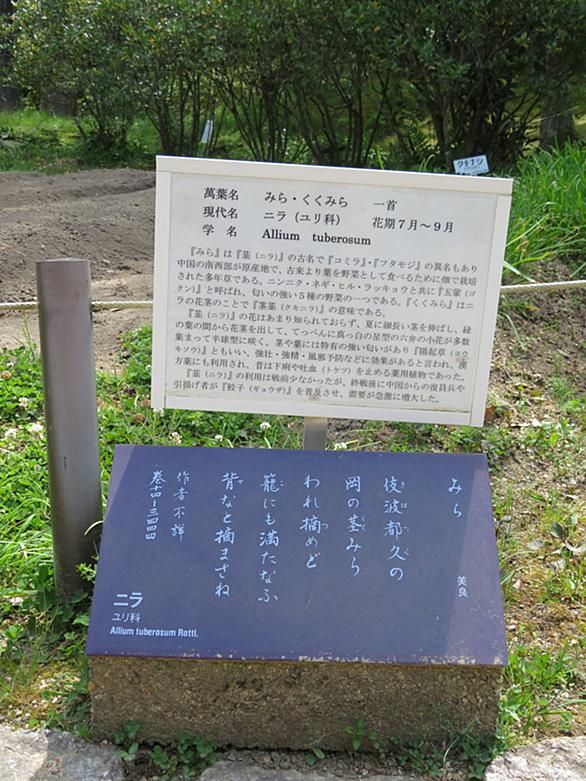 クチナシ
萬葉名　みら・くくみら　一首
現代名　ニラ（ユリ科）　花期７月～９月
学　名　Allium tuberosum
『みら』は『韮（ニラ）』の古名で『コミラ』・『フタモジ』の異名もあり
中国の南西部が原産地で、古来より葉を野菜として食べるために畑で栽培
された多年草である。ニンニク・ネギ・ヒル・ラッキョウと共に『五葷（ゴ
クン）』と呼ばれ、匂いの強い５種の野菜の一つである。『くくみら』はニ
ラの花茎のことで『茎韮（クキニラ）』の意味である。
『韮（ニラ）』の花はあまり知られておらず、夏に細長い茎を伸ばし、緑
の葉の間から花茎を出して、てっぺんに真っ白の星型の六弁の小花が多数
集まって半球型に咲く。茎や葉には特有の強い匂いがあり『陽起草（ヨウ
キソウ）』ともいい、強壮・強精・風邪予防などに効果があると言われ、漢
方薬にも利用され、昔は下痢や吐血（トケツ）を止める薬用植物であった。
『韮（ニラ）』の利用は戦前少なかったが、終戦後に中国からの復員兵や
引揚げ者が『餃子（ギョウザ）』を普及させ、需要が急激に増大した。
みら
美良
伎波都久の
きはつく
岡の茎みら
くく
われ摘めど
つ
籠にも満たなふ
こ
背なと摘まさね
せ
作者不詳
巻十四－三四四四
ニラ
ユリ科
Allium tuberosum Rottl.